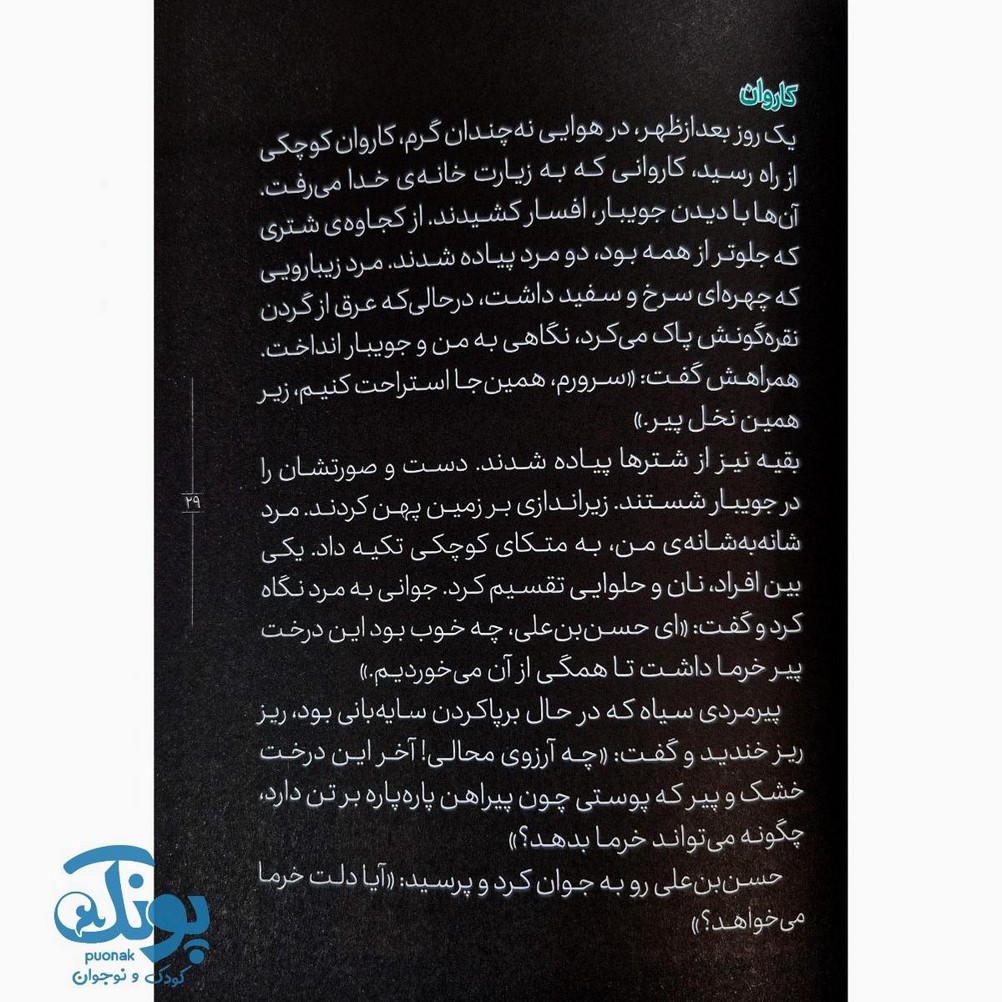 کاروان
یک روز بعدازظهر، در هوایی نه‌چندان گرم، کاروان کوچکی
از راه رسید، کاروانی که به زیارت خانه‌ی خدا می‌رفت.
آن‌ها با دیدن جویبار، افسار کشیدند. از کجاوه‌ی شتری
که جلوتر از همه بود، دو مرد پیاده شدند. مرد زیبارویی
که چهره‌ای سرخ و سفید داشت، درحالی‌که عرق از گردن
نقره‌گونش پاک می‌کرد، نگاهی به من و جویبار انداخت.
همراهش گفت: «سرورم، همین‌جا استراحت کنیم، زیر
همین نخل پیر.»
بقیه نیز از شترها پیاده شدند. دست و صورتشان را
در جویبار شستند. زیراندازی بر زمین پهن کردند. مرد
شانه‌به‌شانه‌ی من، به متکای کوچکی تکیه داد. یکی
بین افراد، نان و حلوایی تقسیم کرد. جوانی به مرد نگاه
کرد و گفت: «ای حسن‌بن‌علی، چه خوب بود این درخت
پیر خرما داشت تا همگی از آن می‌خوردیم.»
پیرمردی سیاه که در حال برپاکردن سایه‌بانی بود، ریز
ریز خندید و گفت: «چه آرزوی محالی! آخر این درخت
خشک و پیر که پوستی چون پیراهن پاره‌پاره بر تن دارد،
چگونه می‌تواند خرما بدهد؟»
حسن‌بن‌علی رو به جوان کرد و پرسید: «آیا دلت خرما
می‌خواهد؟»
۲۹
پونک
puonak
کودک و نوجوان